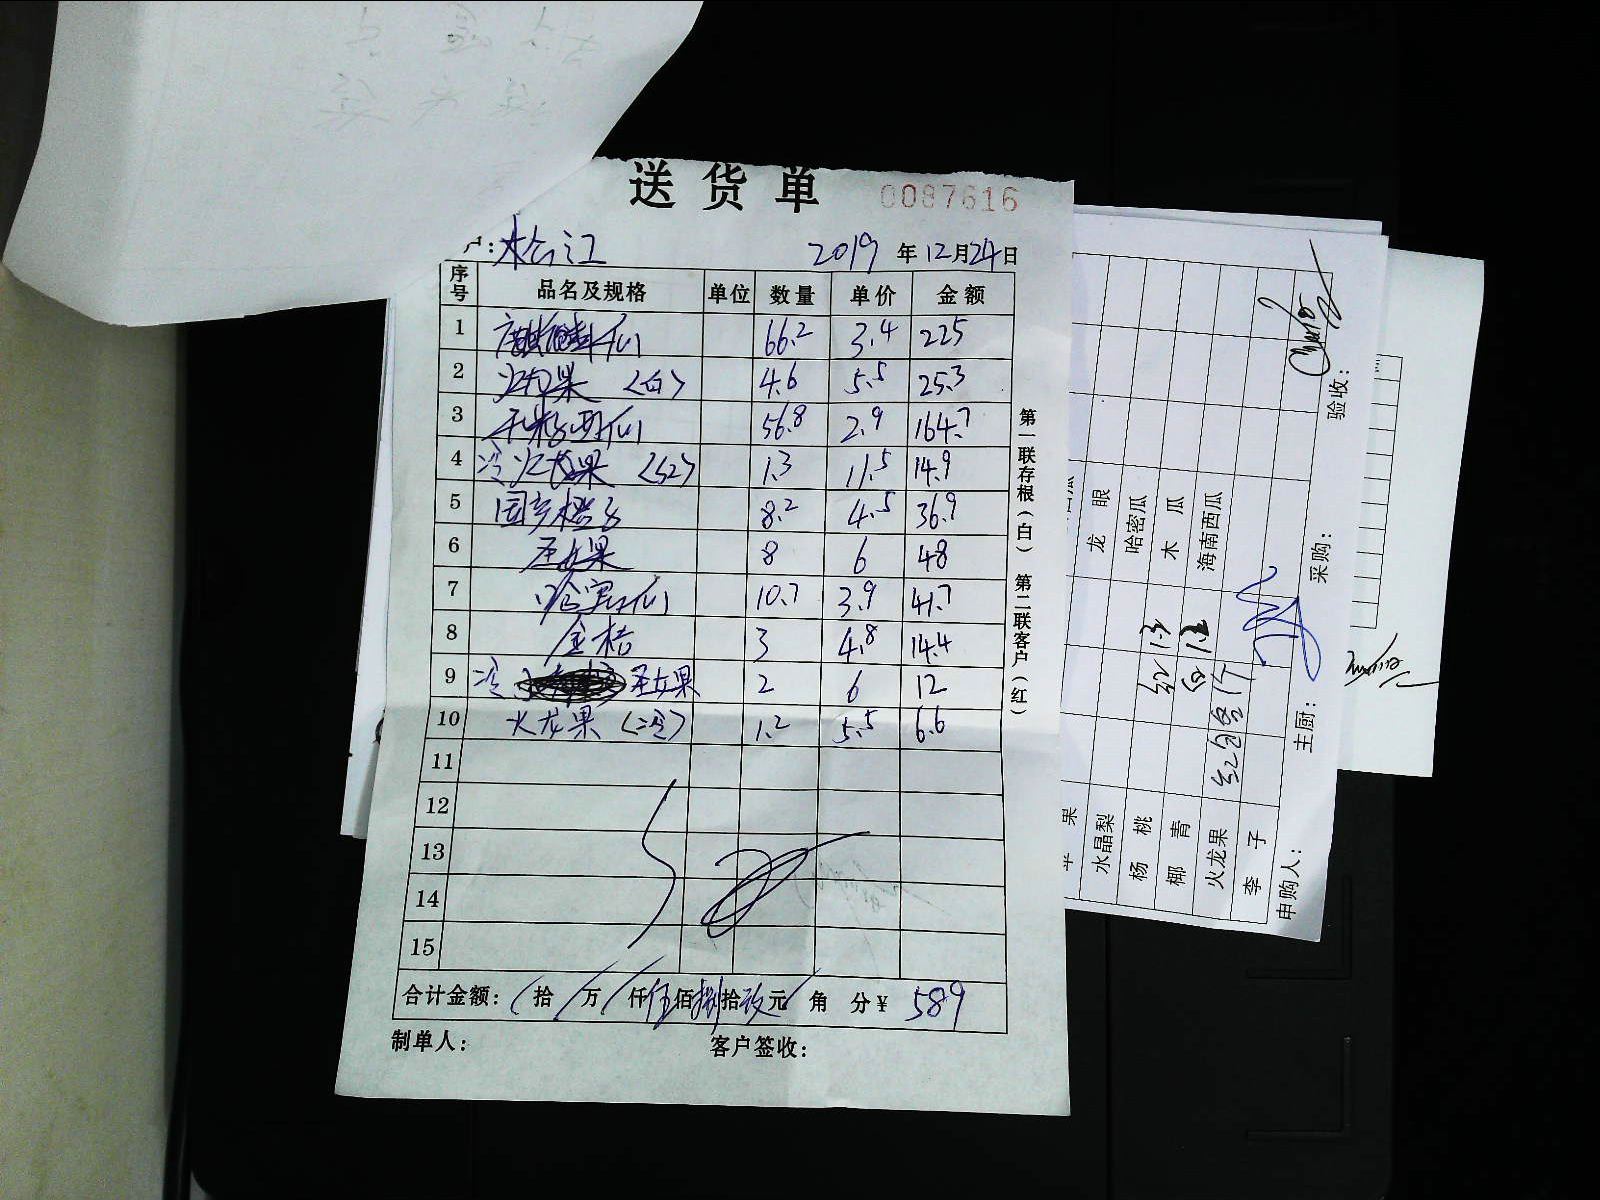 送货单 0087616
户: 松江 2019 年 12 月 24 日
序号 品名及规格 单位 数量 单价 金额
1 麒麟瓜 66.2 3.4 225
2 火龙果 (白) 4.6 5.5 25.3
3 无籽西瓜 56.8 2.9 164.7
4 冷 火龙果 (红) 1.3 11.5 14.9
5 国产橙子 8.2 4.5 36.9
6 圣女果 8 6 48
7 哈密瓜 10.7 3.9 41.7
8 金桔 3 4.8 14.4
9 冷 圣女果 2 6 12
10 火龙果 (冷) 1.2 5.5 6.6
11
12
13
14
15
合计金额: 拾 万 仟 伍 佰 捌 拾 玖 元 角 分 ¥ 589
制单人: 客户签收:
第一联存根(白) 第二联客户(红)
龙眼
哈密瓜
木瓜
海南西瓜
水晶梨
杨桃
椰青
火龙果
李子
申购人: 主厨: 采购: 验收: